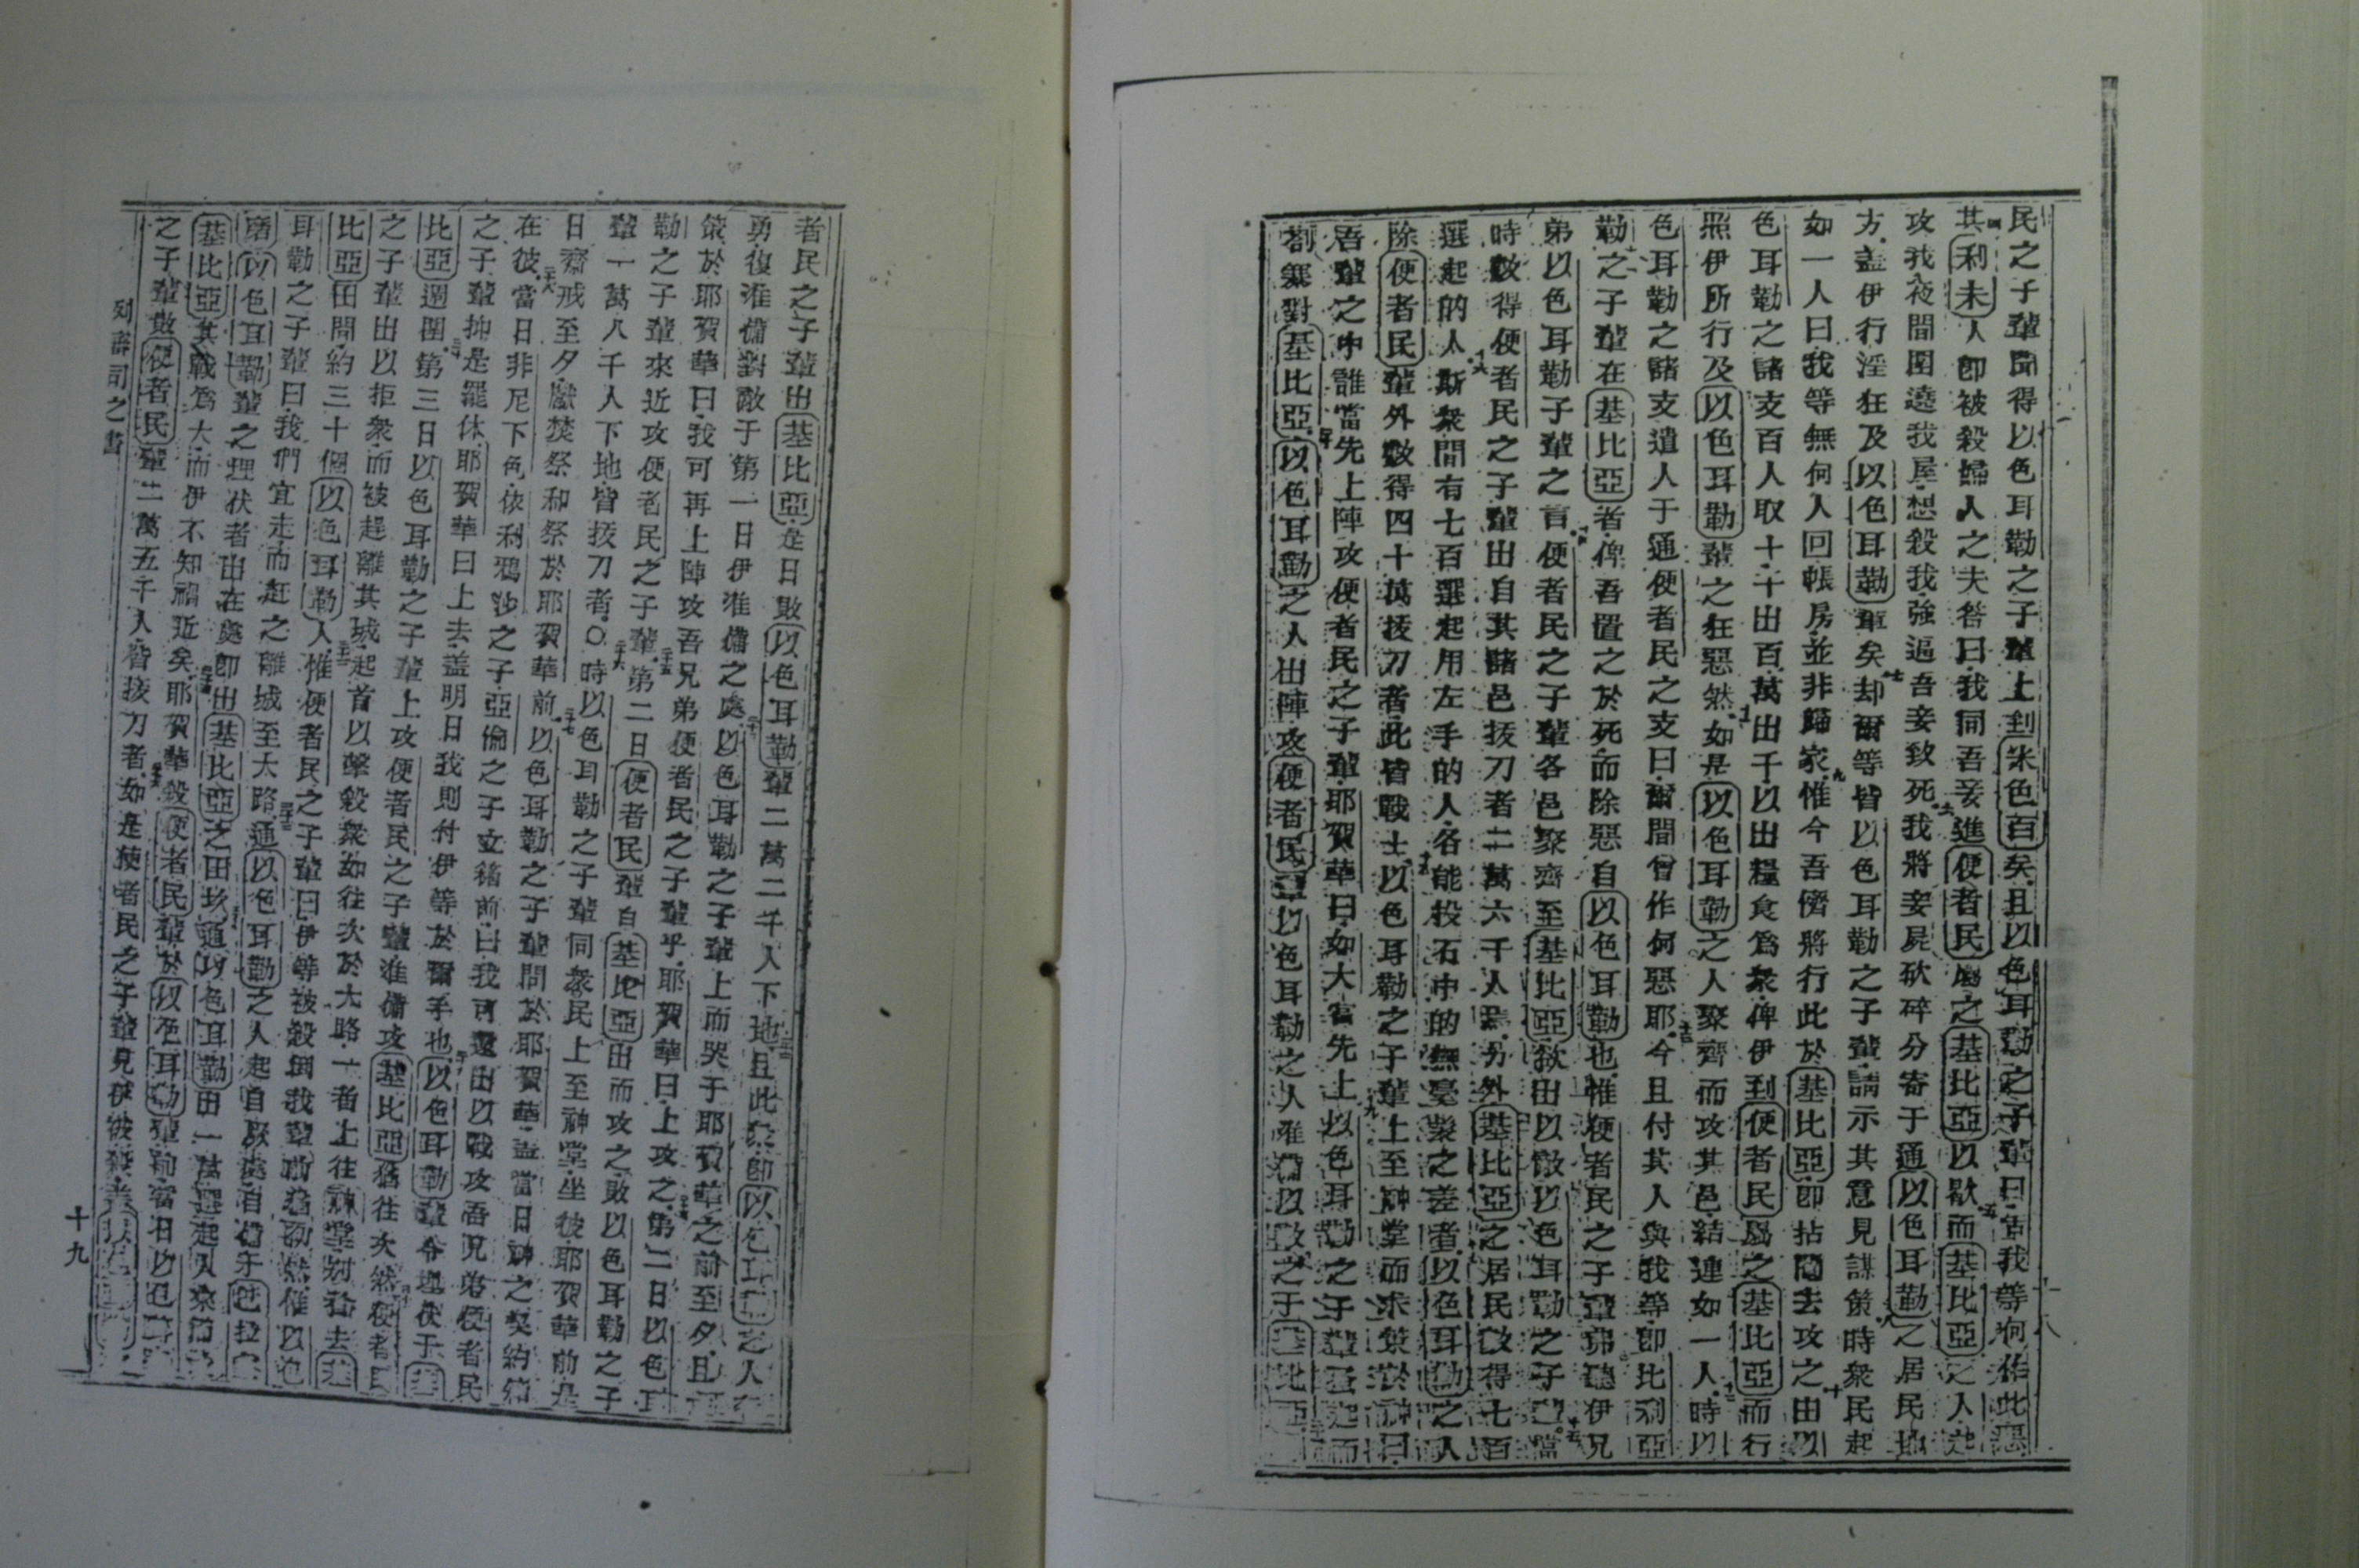 民之子輩聞得以色耳勒之子輩上到米色百矣且以色耳勒之子輩曰吿我等何作此惡
其利未人卽被殺婦人之夫答曰我同吾妾進便者民屬之基比亞以歇而基比亞之人起
攻我夜間圍遶我屋想殺我強逼吾妾致死我將妾屍砍碎分寄于通以色耳勒之居民地
方蓋伊行淫狂及以色耳勒輩矣却爾等皆以色耳勒之子輩請示其意見謀策時衆民起
如一人曰我等無何人回帳房並非歸家惟今吾儕將行此於基比亞卽拈鬮去攻之由以
色耳勒之諸支百人取十千出百萬出千以出糧食爲衆俾伊到便者民屬之基比亞而行
照伊所行及以色耳勒輩之狂惡然如是以色耳勒之人聚齊而攻其邑結連如一人時以
色耳勒之諸支遣人于通便者民之支曰爾間曾作何惡耶今且付其人與我等卽比利亞
勒之子輩在基比亞者俾吾置之於死而除惡自以色耳勒也惟便者民之子輩弗聽伊兄
弟以色耳勒子輩之言便者民之子輩各邑聚齊至基比亞欲出以敵以色耳勒之子
時數得便者民之子輩出自其諸邑拔刀者二萬六千人另外基比亞之居民數得七百
選起的人斯衆間有七百選起用左手的人各能投石中的無毫髮之差者以色耳勒之人
除便者民輩外數得四十萬拔刀者此皆戰士以色耳勒之子輩上至神堂而求策於神曰
吾輩之中誰當先上陣攻便者民之子輩耶賀華曰如大富先上以色耳勒之子輩蚤起而
劄寨對基比亞以色耳勒之人出陣攻便者民輩以色耳勒之人准備以敵之于基比亞
者民之子輩出基比亞是日敗以色耳勒輩二萬二千人下地且此衆卽以色耳勒之人
勇復准備對敵于第一日伊准備之處以色耳勒之子輩上而哭于耶賀華之前至夕且
策於耶賀華曰我可再上陣攻吾兄弟便者民之子輩乎耶賀華曰上攻之第二日以色耳
勒之子輩來近攻便者民之子輩第二日便者民輩自基比亞出而攻之敗以色耳勒之子
輩一萬八千人下地皆拔刀者○時以色耳勒之子輩同衆民上至神堂坐彼耶賀華前是
日齋戒至夕獻焚祭和祭於耶賀華前以色耳勒之子輩問於耶賀華蓋當日神之契約箱
在彼當日非尼下色依利鴉沙之子亞倫之子立箱前曰我可還出以戰攻吾兄弟便者民
之子輩抑是罷休耶賀華曰上去蓋明日我則付伊等於爾手也以色耳勒輩令埋伏于
比亞週圍第三日以色耳勒之子輩上攻便者民之子輩准備攻基比亞猶往次然便者民
之子輩出以拒衆而被趕離其城起首以擊殺衆如往次於大路一者上往神堂別者去
比亞田間約三十個以色耳勒人惟便者民之子輩曰伊等被殺倒我輩前猶初然惟以色
耳勒之子輩曰我們宜走而赶之離城至大路通以色耳勒之人起自厥處自備于巴拉
磨以色耳勒輩之埋伏者出在處卽出基比亞之田坎通以色耳勒出一萬選起人來
基比亞其戰爲大而伊不知禍近矣耶賀華殺便者民輩於以色耳勒輩前當日以色耳
之子輩敗便者民輩二萬五千人皆拔刀者如是便者民之子輩見伊被殺蓋
列審司之書
十九